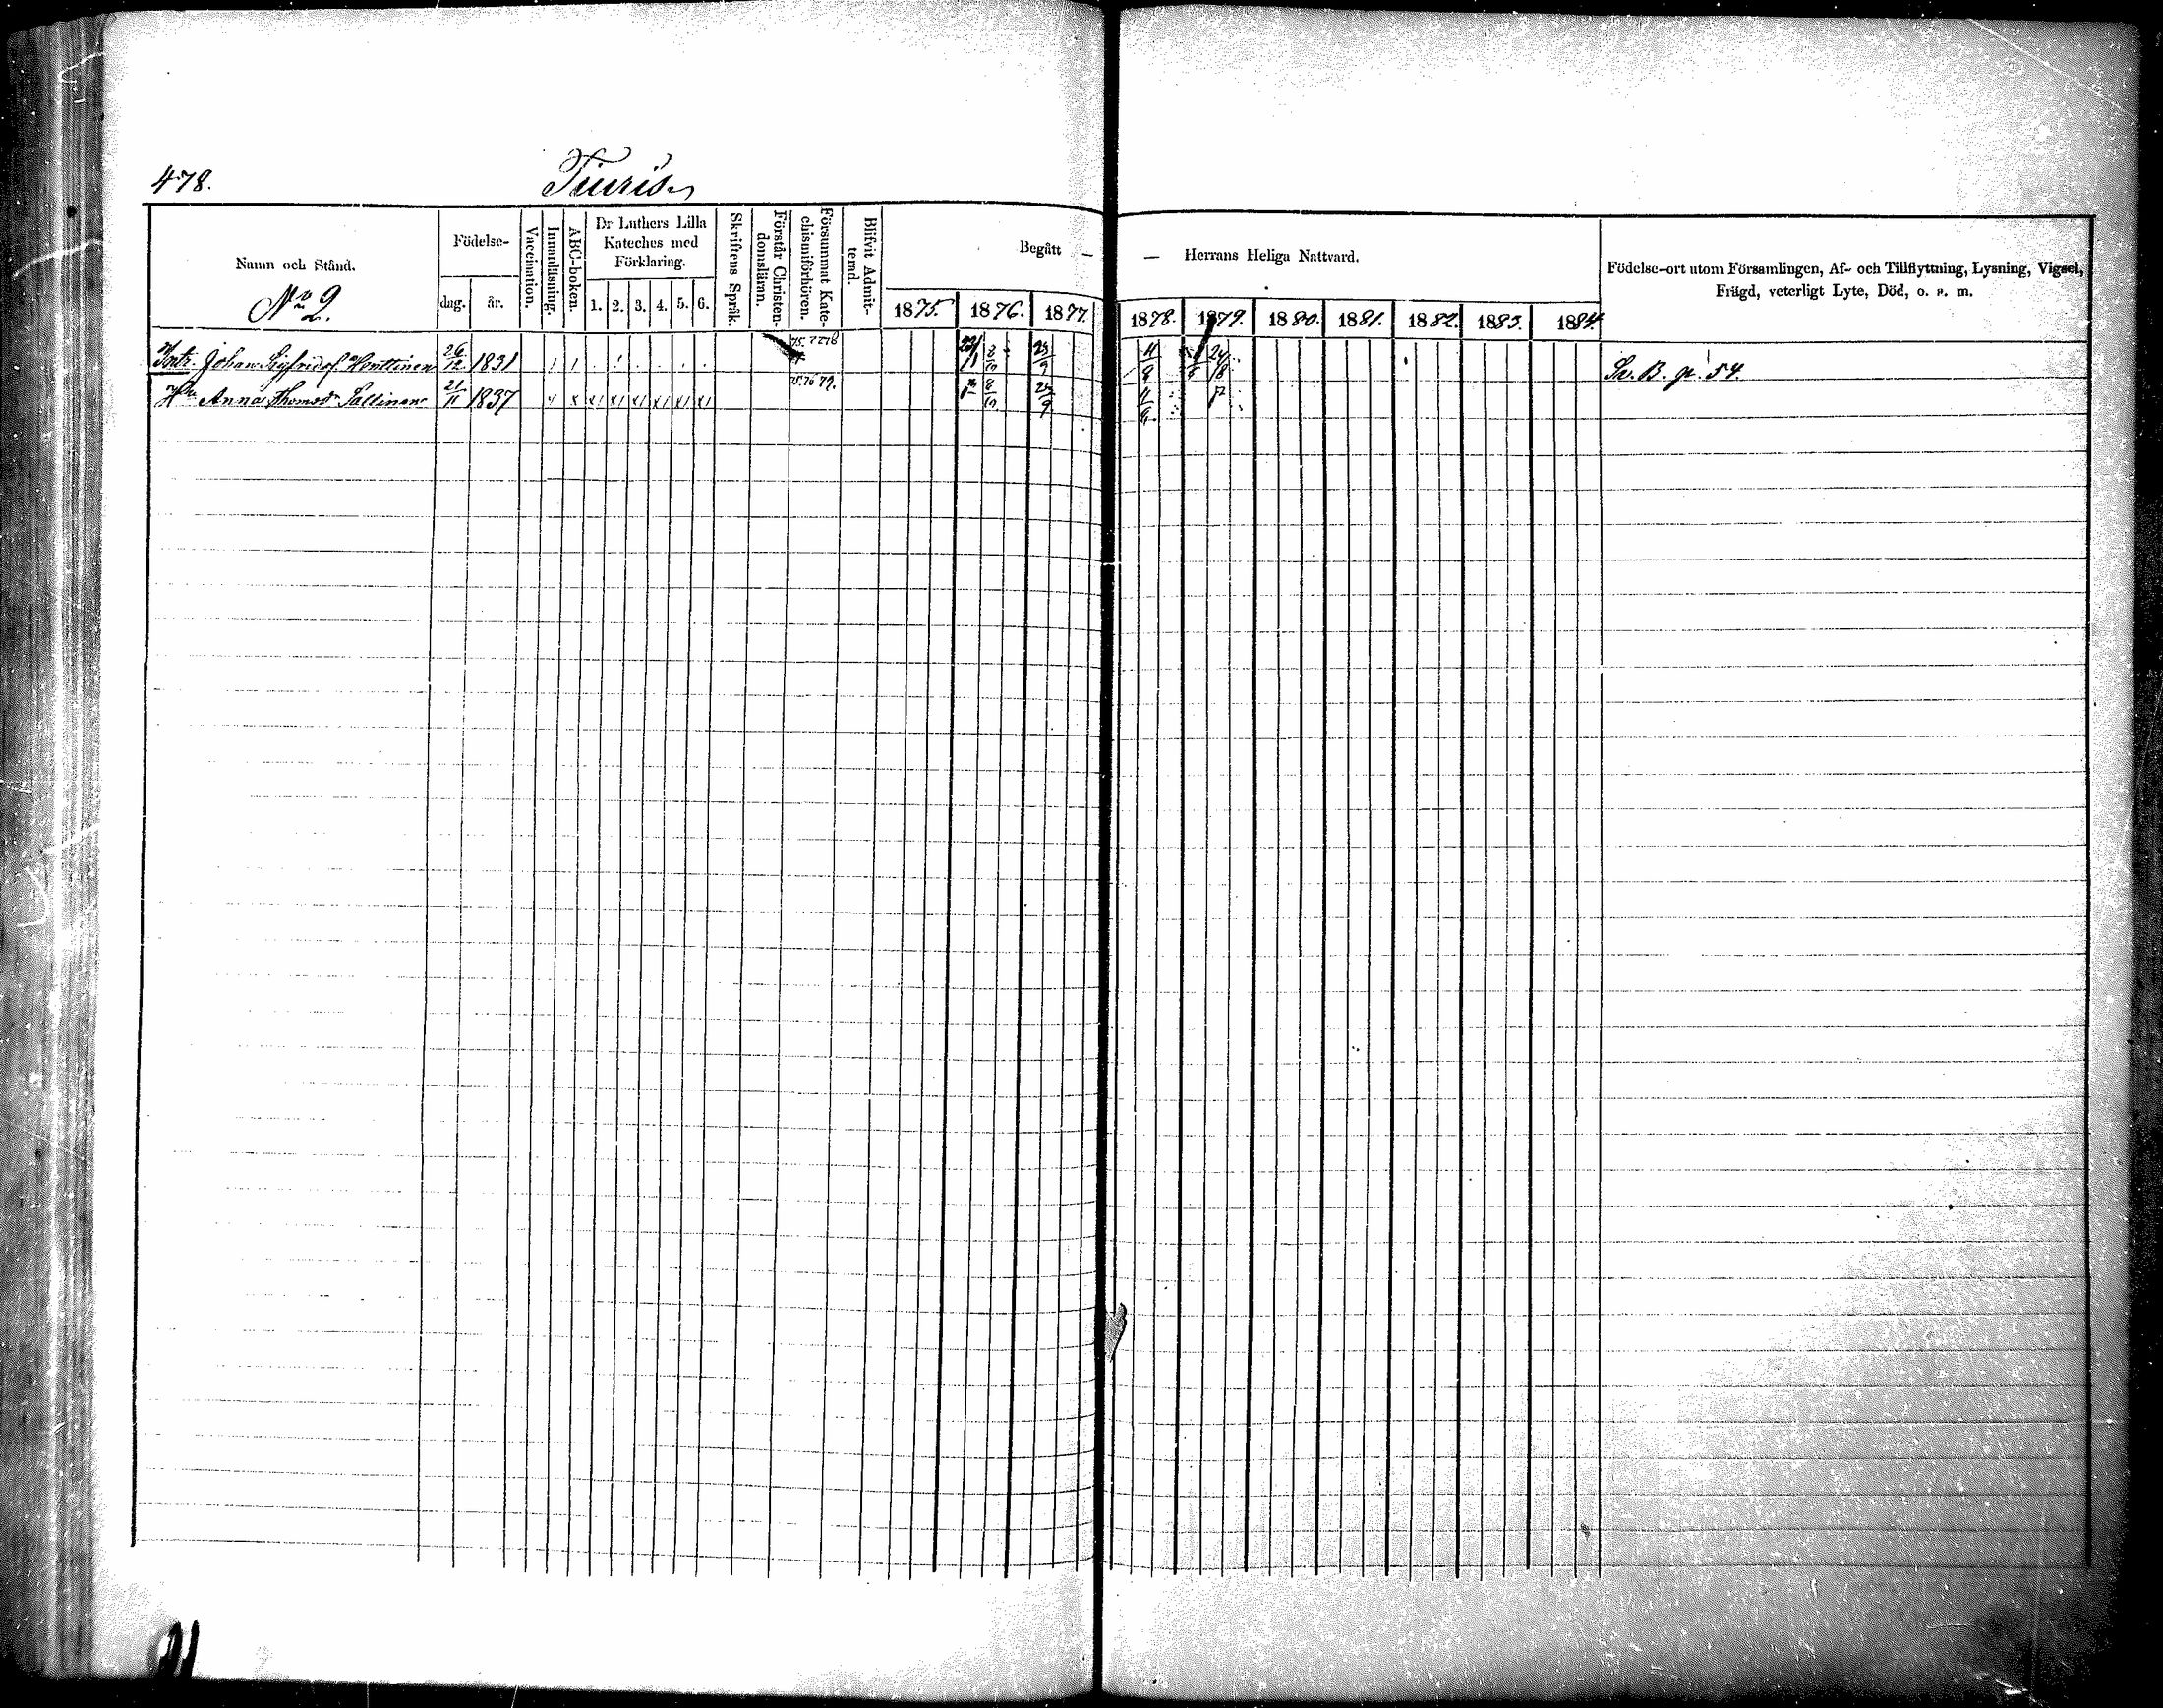 478.
Tiuris
Namn och Stånd.
No 2.
Födelse-
dag. år.
Vaccination.
Innanläsning.
ABC-boken.
Dr Luthers Lilla
Kateches med
Förklaring.
1. 2. 3. 4. 5. 6.
Skriftens Språk.
Förstår Christen-
domsläran.
Försummat Kate-
chismiförhören.
Blifvit Admit-
terad.
Begått —
1875. 1876. 1877.
— Herrans Heliga Nattvard.
1878. 1879. 1880. 1881. 1882. 1883. 1884.
Födelse-ort utom Församlingen, Af- och Tillflyttning, Lysning, Vigsel,
Frägd, veterligt Lyte, Död, o. s. m.
Johan Sigfridsf. Henttinen 26/12 1831 8/10 11/8 24/8
Sv. B. p. 54.
Hu Anna Thomsd. Sallinen 21/11 1837 x x x1 x1 x1 x1 x1 x1 75.76 79. 8/10